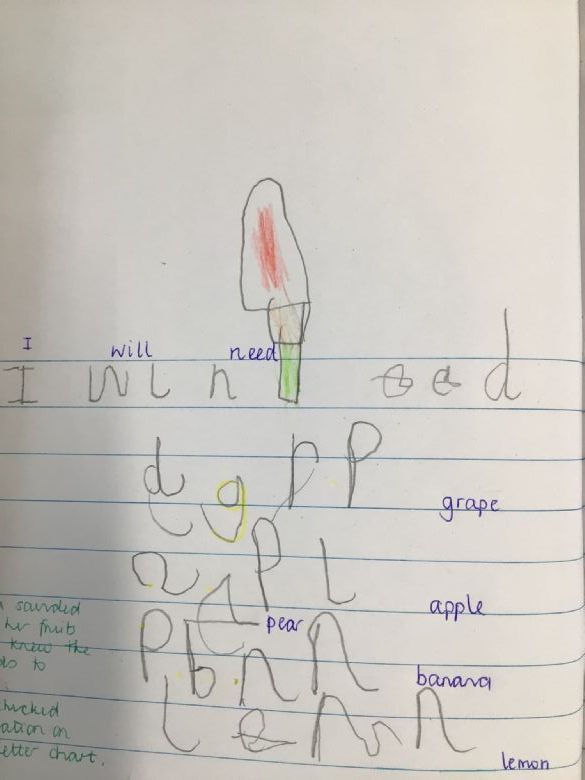 I will need
I W L n e e d
d g r P grape
a P L apple
pear
P b n n banana
L e m n lemon
sounded
her fruits
knew the
to
checked
ation on
etter chart.